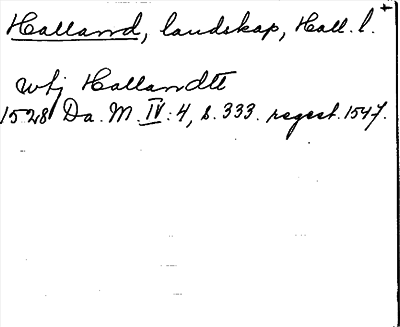 Halland, landskap, Hall. l.
utj Hallandtt
1528 Da. M. IV: 4, s. 333. regest. 1547.